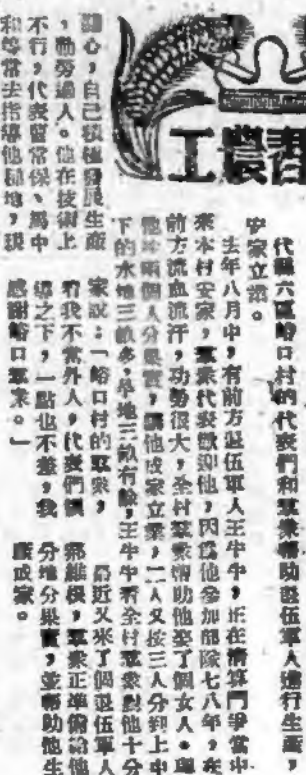 農工
代縣六區峪口村的代表們和羣衆幫助退伍軍人進行生產，
安家立業。
去年八月中，有前方退伍軍人王牛牛，正在清算鬥爭當中
來本村安家，羣衆代表歡迎他，因爲他參加部隊七八年，在
前方流血流汗，功勞很大，全村羣衆幫助他娶了個女人。
他按兩個人分果實，讓他成家立業，二人又按三人分到上中
下的水地三畝多，旱地三畝有餘，王牛牛看全村羣衆對他十分
關心，自己積極發展生產
，勤勞過人。他在技術上
不行，代表常保、馬中
和等常去指導他種地，現
家說：「峪口村的羣衆，
看我不當外人，代表們領
導之下，一點也不差，我
感謝峪口羣衆。」
最近又來了個退伍軍人
郭維根，羣衆正準備給他
分地分果實，並幫助他生
產成家。